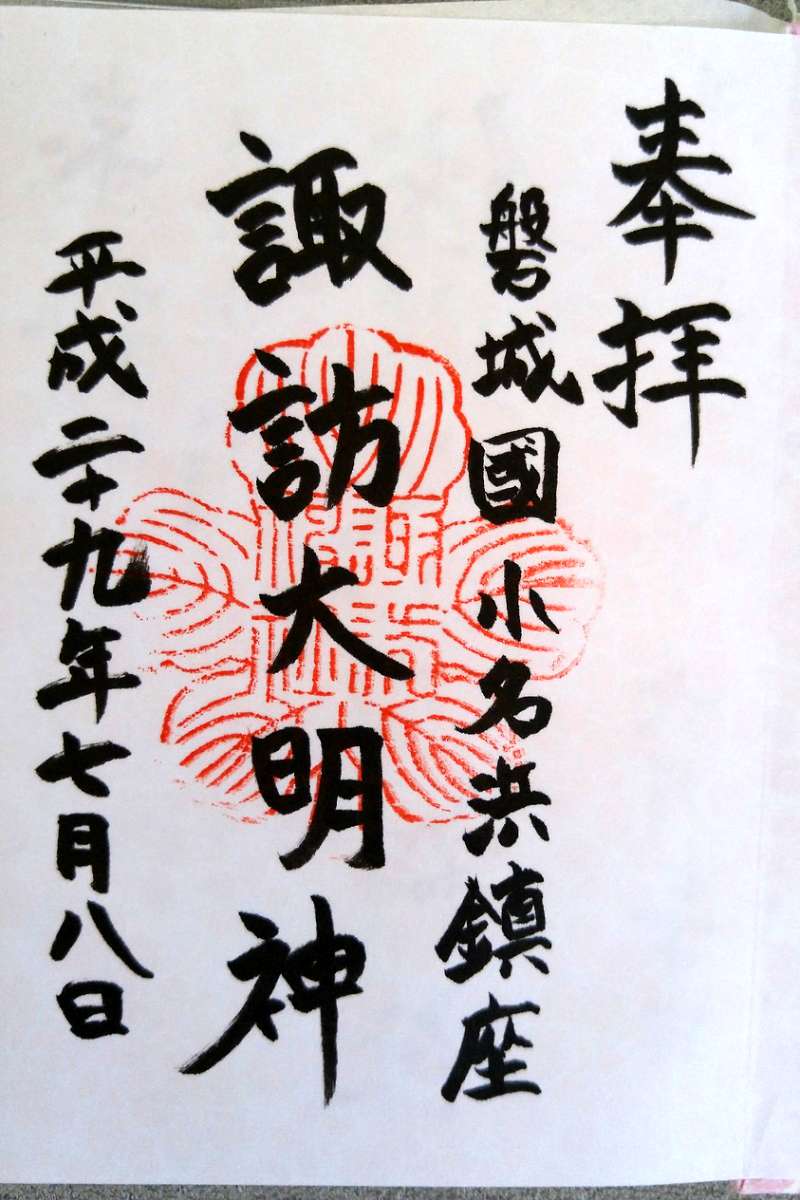 奉拝
磐城國小名浜鎮座
諏訪大明神
平成二十九年七月八日